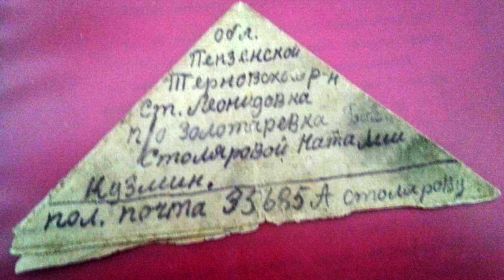 обл.
Пензенской
Терновской р-н
ст. Леонидовка
п/о Золотаревка
Столяровой Наталии
Кузмин.
пол. почта 33685 А Столярову